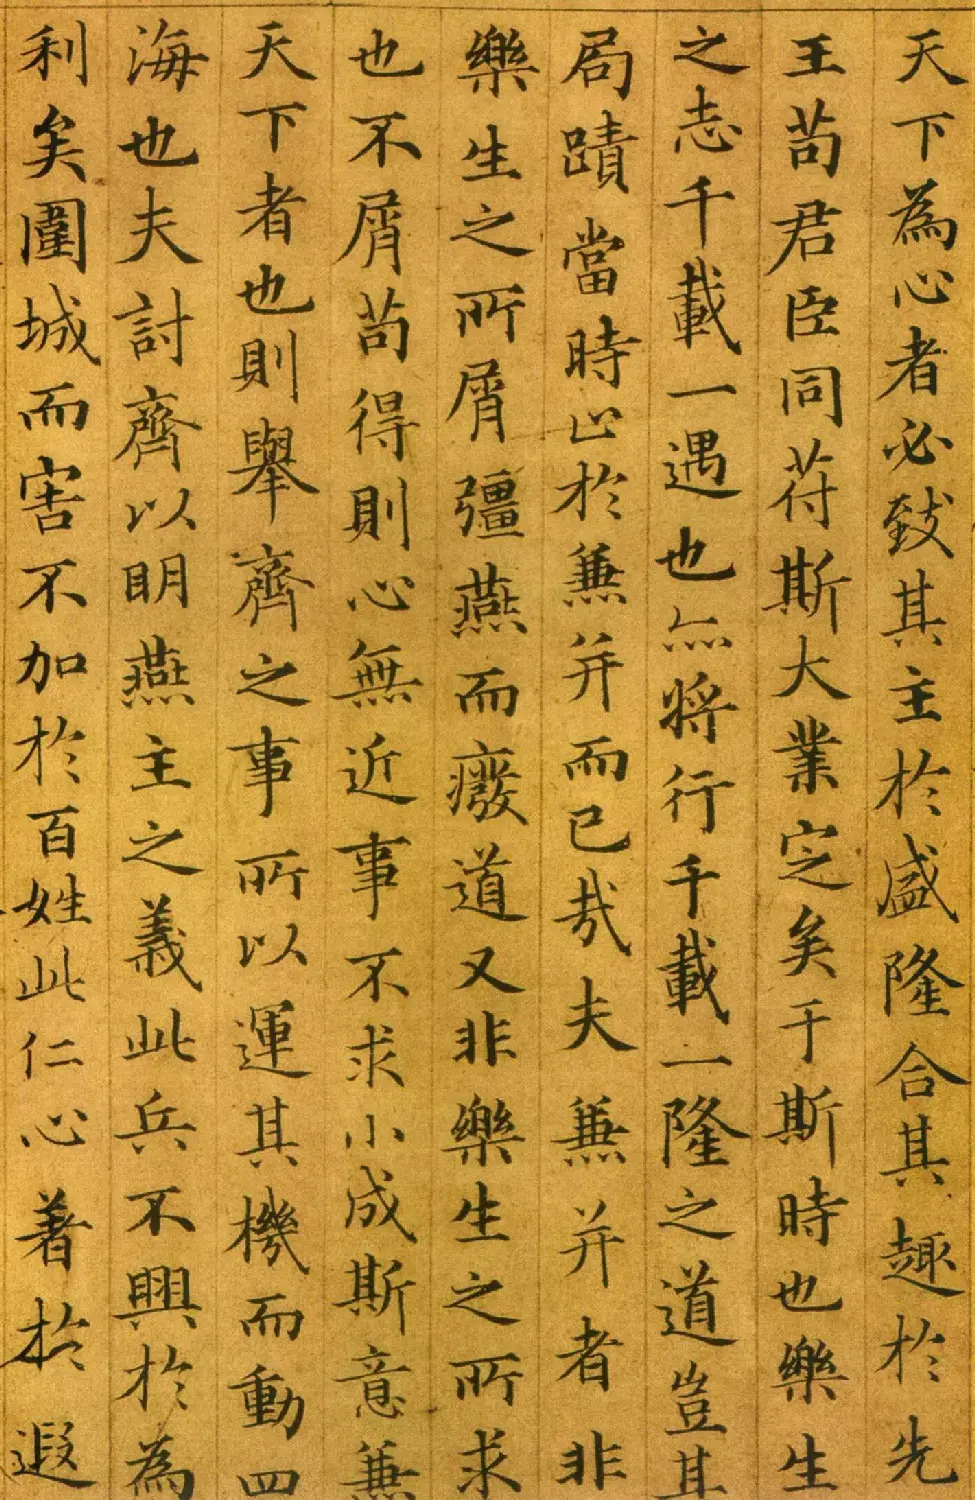 天下為心者必致其主於盛隆合其趣於先
王苟君臣同苻斯大業定矣于斯時也樂生
之志千載一遇也亦將行千載一隆之道豈其
局蹟當時止於兼并而已哉夫兼并者非
樂生之所屑彊燕而廢道又非樂生之所求
也不屑苟得則心無近事不求小成斯意兼
天下者也則舉齊之事所以運其機而動四
海也夫討齊以明燕主之義此兵不興於為
利矣圍城而害不加於百姓此仁心著於遐